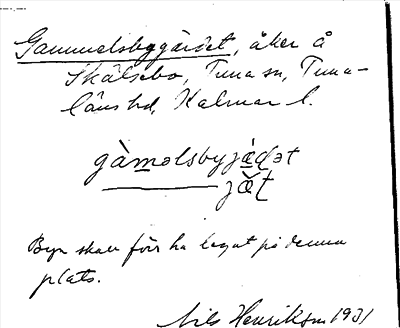 Gammelsbygärdet, åker å
Skälsebo, Tuna sn, Tuna-
läns hd, Kalmar l.
gàməlsbyjáɖət
jæ̌ʈ
Byn skall förr ha legat på denna
plats.
Nils Henriksson 1931